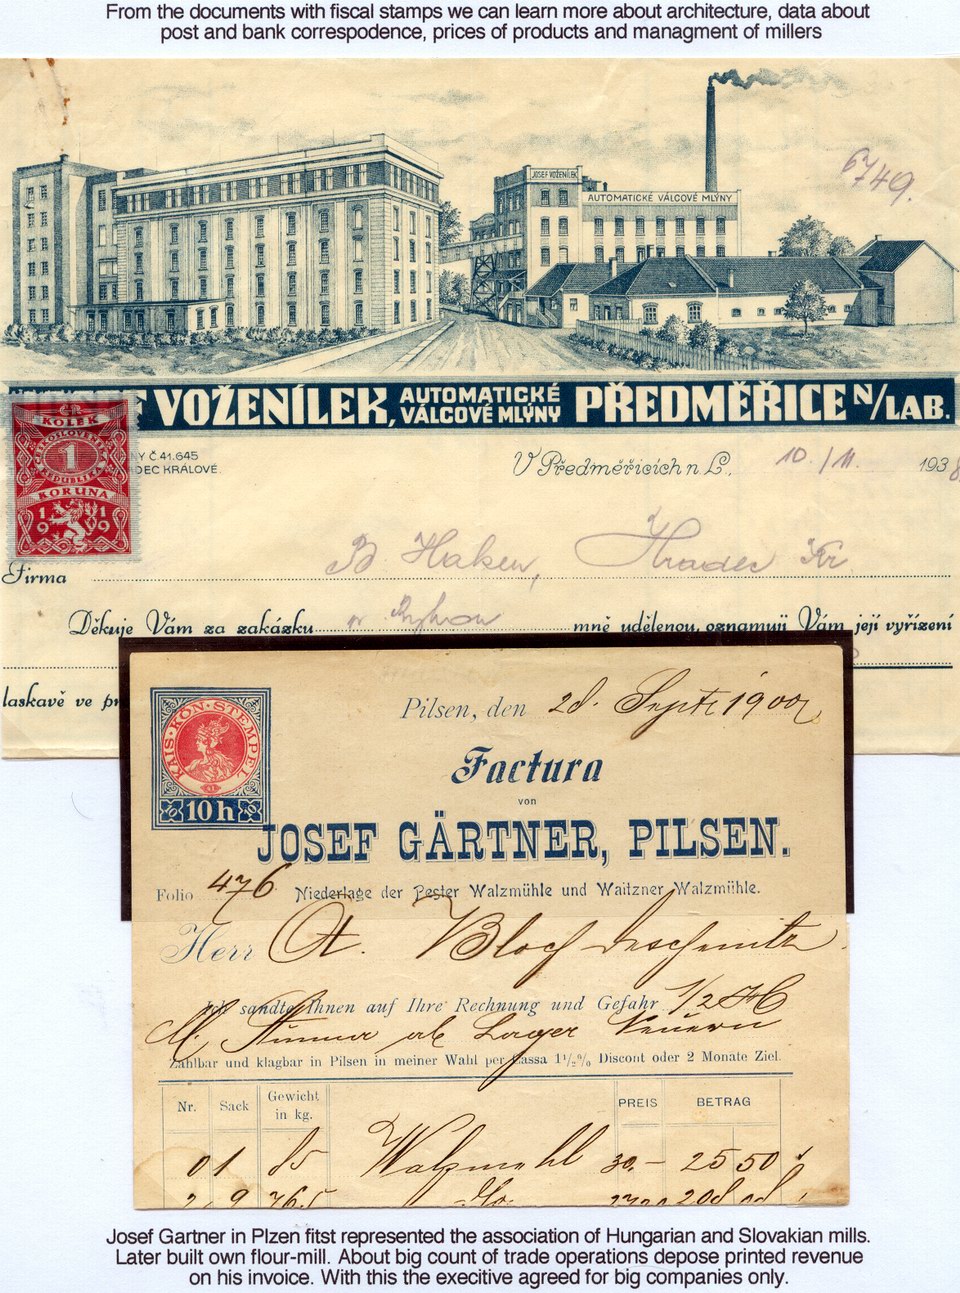 From the documents with fiscal stamps we can learn more about architecture, data about
post and bank correspodence, prices of products and managment of millers
JOSEF VOŽENÍLEK
AUTOMATICKÉ VÁLCOVÉ MLÝNY
6749.
F VOŽENÍLEK, AUTOMATICKÉ VÁLCOVÉ MLÝNY PŘEDMĚŘICE N/LAB.
Č.R.
KOLEK
1
KORUNA
1919
NY Č 41.645
DEC KRÁLOVÉ.
V Předměřicích n L. 10./11. 1938
Firma B Haken, Hradec Kr
Děkuje Vám za zakázku mně udělenou, oznamuji Vám její vyřízení
laskavě ve pr
KAIS·KON·STEMPEL
10 h
Pilsen, den 28. Sept 1900
Factura
von
JOSEF GÄRTNER, PILSEN.
Folio 476 Niederlage der Pester Walzmühle und Waitzner Walzmühle.
Herr A. Bloch
Ich sandte Ihnen auf Ihre Rechnung und Gefahr 1/2
Lager Neuern
Zahlbar und klagbar in Pilsen in meiner Wahl per Cassa 1½% Discont oder 2 Monate Ziel.
Nr. Sack Gewicht in kg. PREIS BETRAG
0 1 85 Walzmehl 30.– 25 50
Josef Gartner in Plzen fitst represented the association of Hungarian and Slovakian mills.
Later built own flour-mill. About big count of trade operations depose printed revenue
on his invoice. With this the execitive agreed for big companies only.